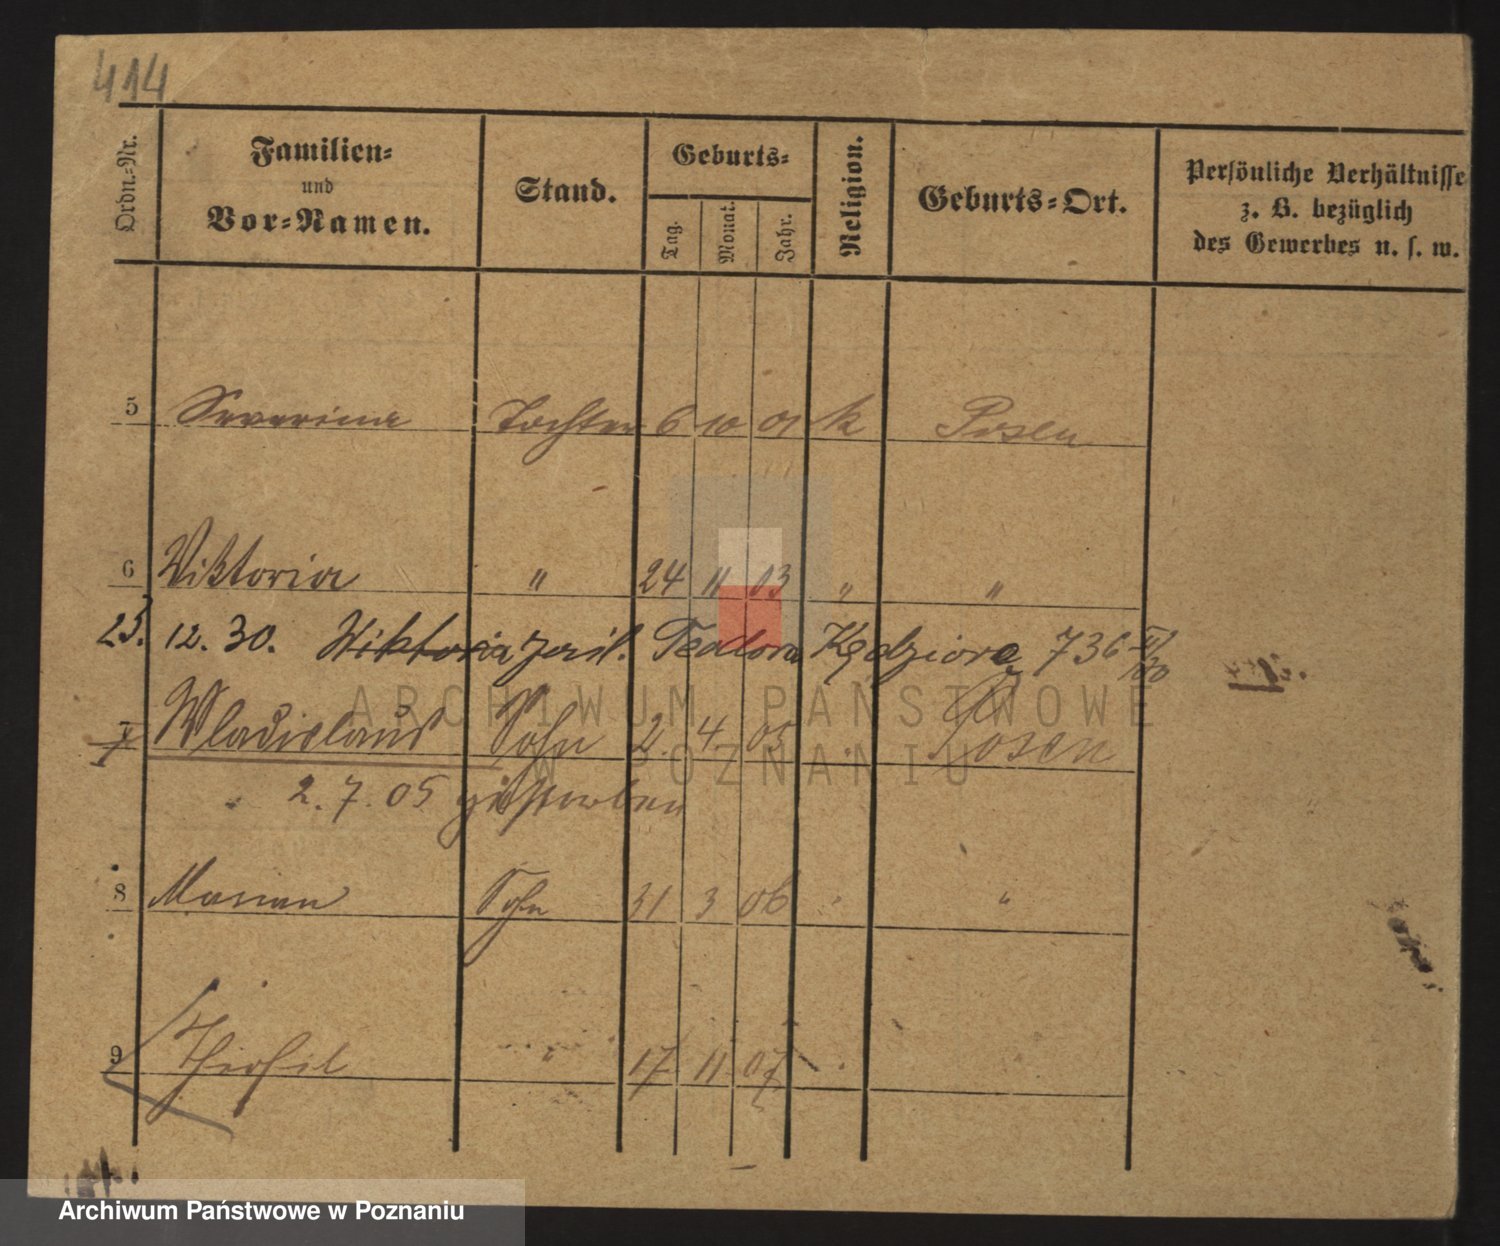 414
Ordn.-Nr.
Familien-
und
Vor-Namen.
Stand.
Geburts-
Tag.
Monat.
Jahr.
Religion.
Geburts-Ort.
Persönliche Verhältnisse
z. B. bezüglich
des Gewerbes u. s. w.
5 Severina Tochter 6 10 01 k Posen
6 Viktoria " 24 11 03 " "
23. 12. 30. Wiktoria zaśl. Teodora Kędziorę 736
7 Wladislaus Sohn 2. 4. 05 " Posen
2. 7. 05 gestorben
8 Marian Sohn 31 3 06 " "
9 " 17 11 07 " "
ARCHIWUM PAŃSTWOWE
W POZNANIU
Archiwum Państwowe w Poznaniu